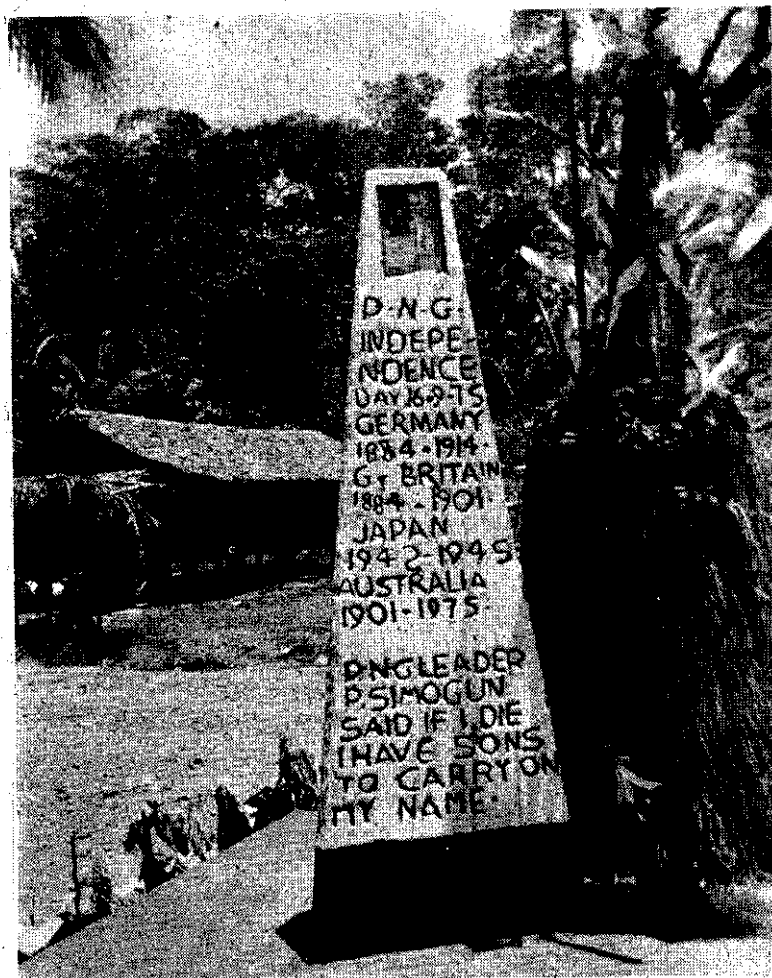 P.N.G.
INDEPE-
NDENCE
DAY 16.9.75
GERMANY
1884-1914.
GT BRITAIN
1884-1901.
JAPAN
1942-1945
AUSTRALIA
1901-1975.
P.N.G LEADER
P. SIMOGUN
SAID IF I DIE
I HAVE SONS
TO CARRY ON
MY NAME.